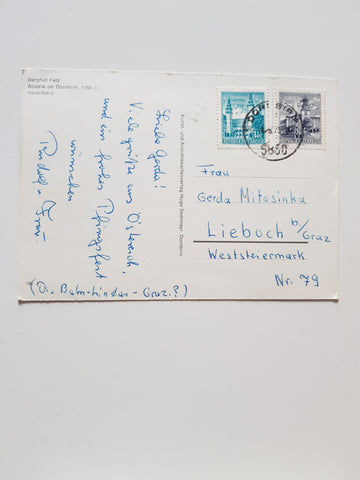 Berghof Fetz
Bödele ob Dornbirn, 1150 m
Vorarlberg
Liebe Gerda!
Viele Grüße aus Österreich,
und ein frohes Pfingstfest
wünschen
Rudolf u. Frau.
(Die Bahn-Linden - Graz.?)
Kunst- und Ansichtskartenverlag Hugo Zeilmayr, Dornbirn
REPUBLIK ÖSTERREICH
REPUBLIK ÖSTERREICH
DORNBIRN
6850
Frau
Gerda Mitosinka
Lieboch b/Graz
Weststeiermark
Nr. 79